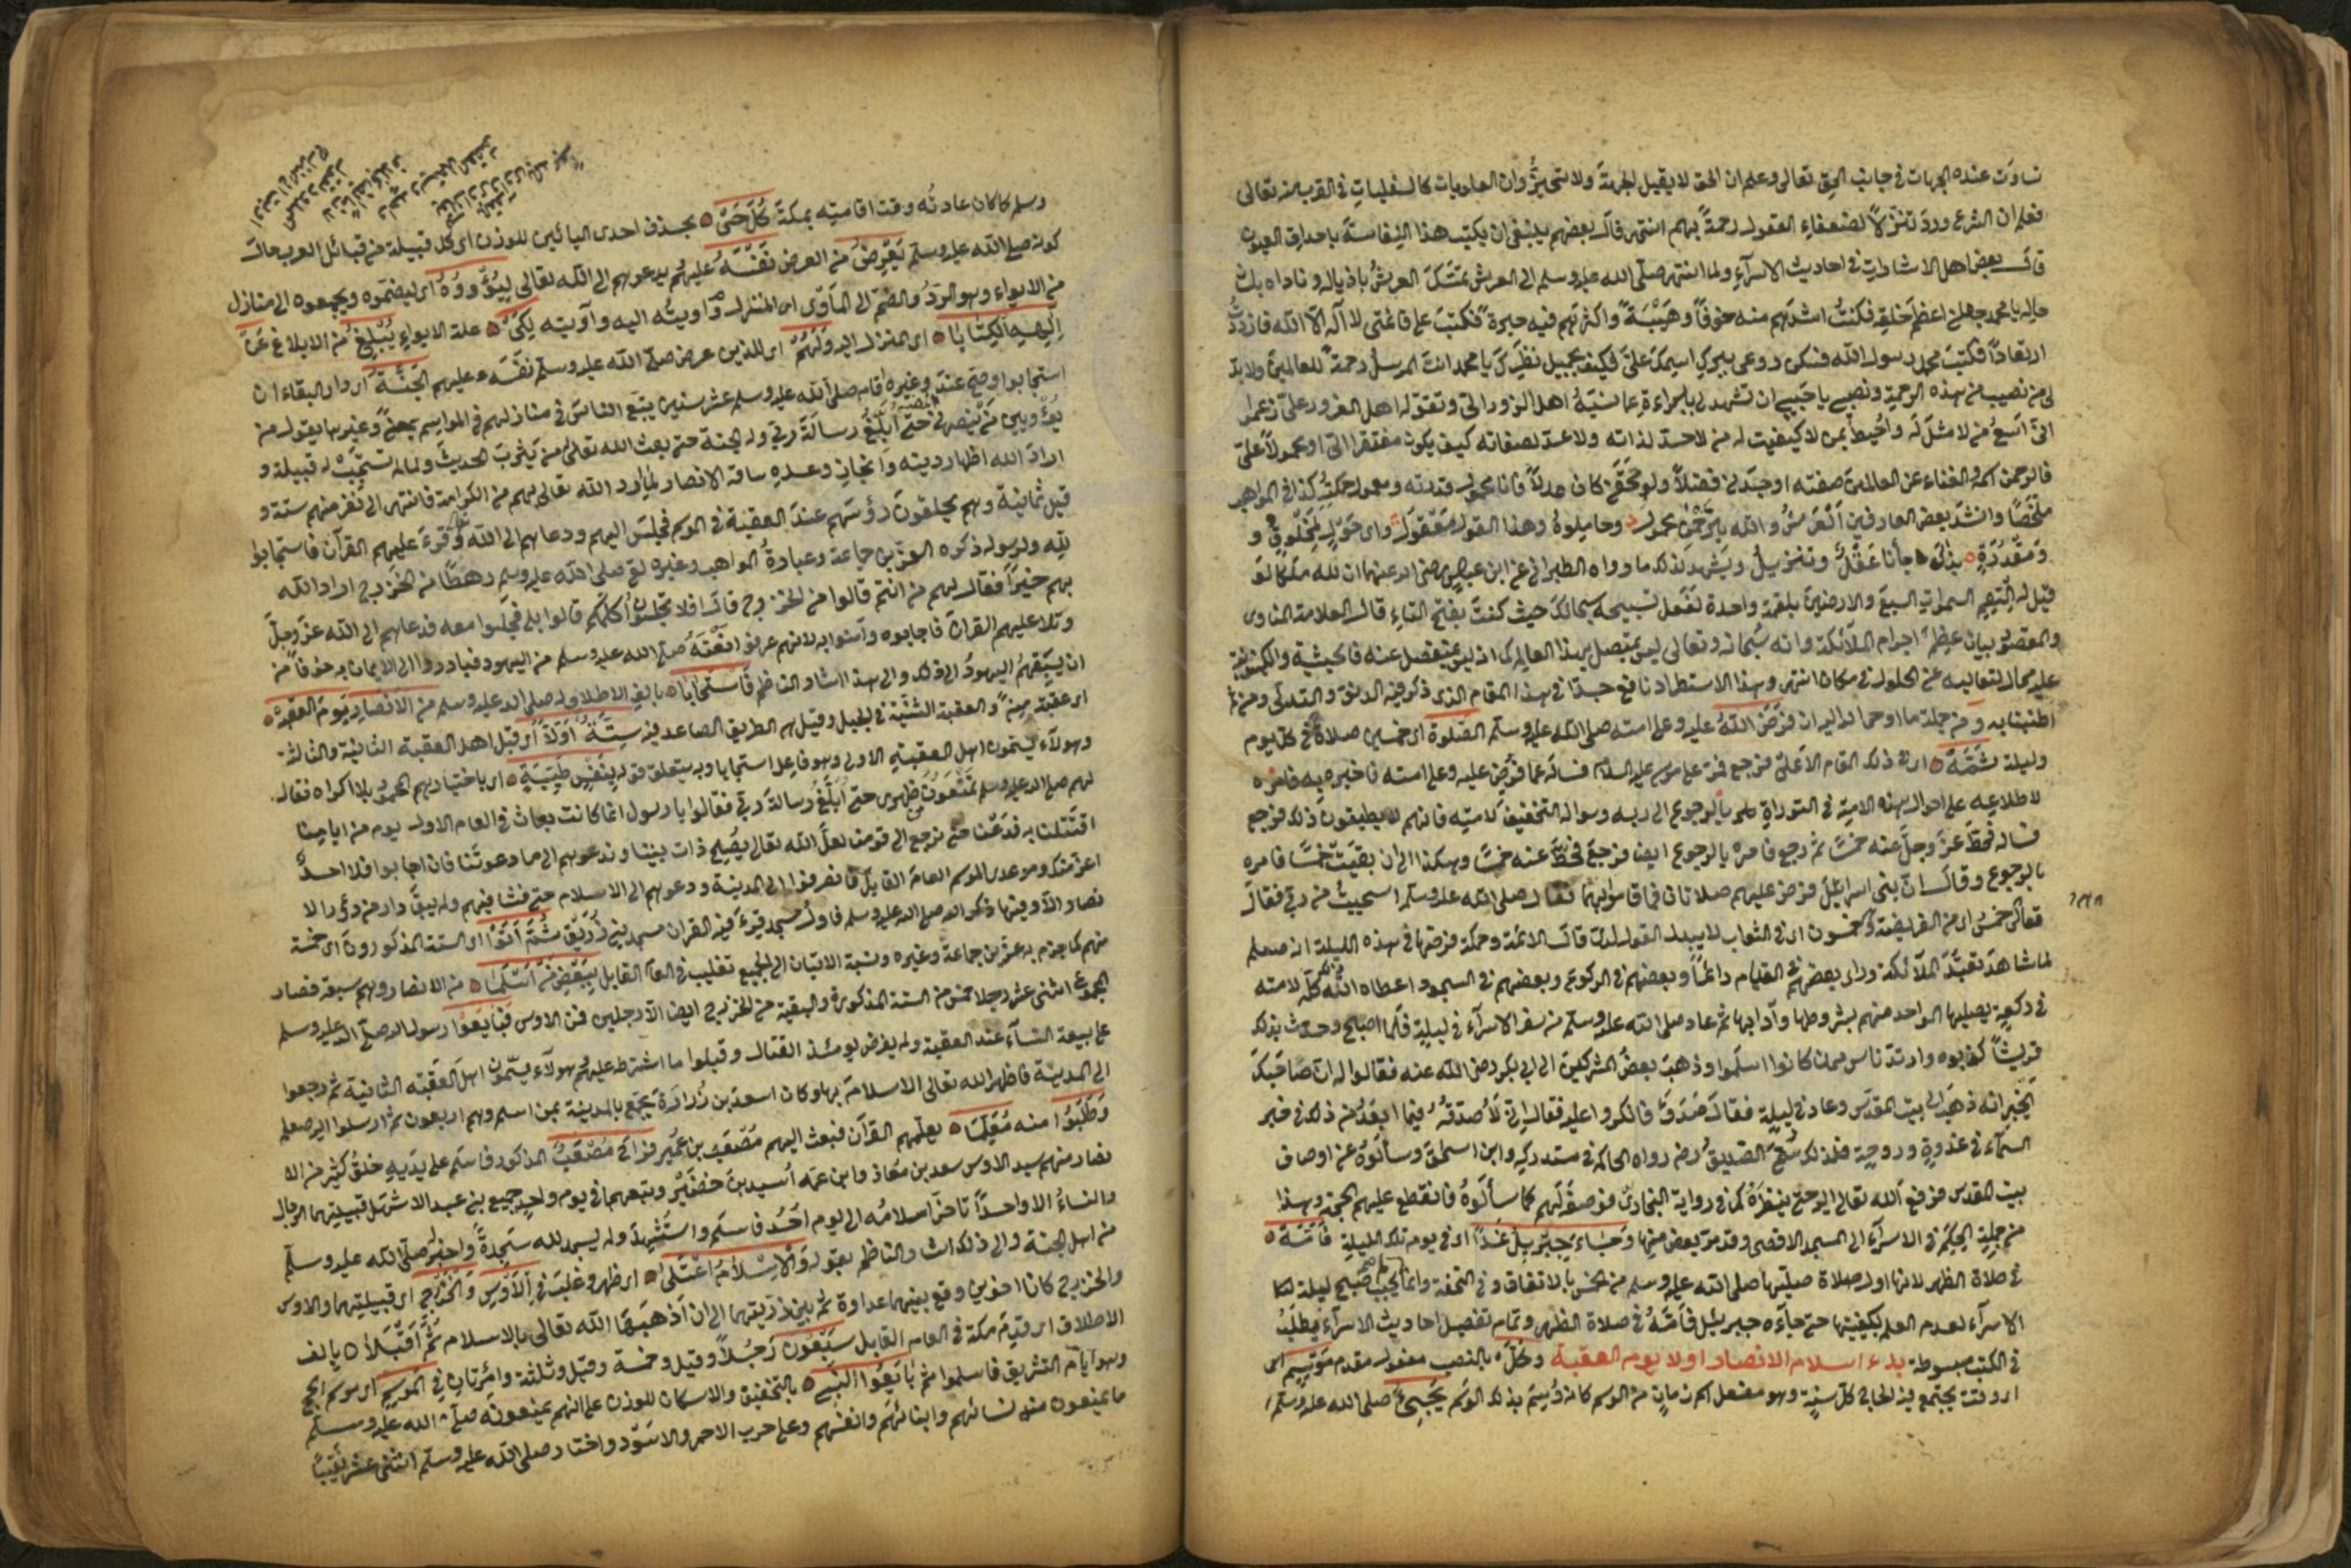 تساوت عنده الجهات في جانب الحق تعالى وعلم ان الحق لا يقبل الجهة ولا التحيز وان العلويات كالسفليات في القرب منه تعالى
فعلم ان الشرع ورد تنزلا لضعفاء العقول رحمة بهم انتهى قال بعضهم ينبغي ان يكتب هذا النفاسة باحداق العيون
قال بعض اهل الاشارات في احاديث الاسراء ولما انتهى صلى الله عليه وسلم الى العرش تمسك العرش باذياله وناداه بلسان
حاله يا محمد جعلني اعظم خلقه فكنت اشدهم منه خوفا وهيبة واكثرهم فيه حيرة فكتب على قائمتي لا اله الا الله فازددت
ارتعادا فكتب محمد رسول الله فسكن روعي ببركة اسمك علي فكيف بجميل نظرك يا محمد انت المرسل رحمة للعالمين ولا بد
لي من نصيب من هذه الرحمة ونصيبي يا حبيبي ان تشهد لي بالبراءة عما نسبه اهل الزور الي وتقوله اهل الغرور علي زعموا
اني اسع من لا مثل له واحيط بمن لا كيفية له من لا حد لذاته ولا عد لصفاته كيف يكون مفتقرا الي او محمولا علي
ملخصا وانشد بعض العارفين العرش والله بالرحمن محمول وحاملوه وهذا القول معقول واي حول لمخلوق و
ومقدرة لولاه جا به عقل وتنزيل ويشهد لذلك ما رواه الطبراني عن ابن عباس رضي الله عنهما ان لله ملكا لو
قيل له التقم السموات السبع والارضين بلقمة واحدة لفعل تسبيحه سبحانك حيث كنت بفتح التاء قال العلامة المناوي
والقصد بيان عظم اجرام الملائكة وانه سبحانه وتعالى ليس بمتصل بهذا العالم كما انه ليس بمنفصل عنه فالحيثية والكينونة
عليه محال لتعاليه عن الحلول في مكان انتهى وهذا الاستطراد نافع جدا في هذا المقام الذي ذكر فيه الدنو والتدلي ومن ثم
اطنبنا به ومن جملة ما اوحى الله اليه ان فرض الله عليه وعلى امته صلى الله عليه وسلم الصلوة اي خمسين صلاة في كل يوم
وليلة ثمة اي في ذلك المقام الاعلى فرجع فمر على موسى عليه السلام فساله عما فرض عليه وعلى امته فاخبره به فامره
لاطلاعه على احوال هذه الامة في التوراة بالرجوع الى ربه وسواله التخفيف لامته فانهم لا يطيقون ذلك فرجع
فساله فحط عز وجل عنه خمسا ثم رجع فامره بالرجوع ايضا فرجع فحط عنه خمسا وهكذا الى ان بقيت خمسا فامره
بالرجوع وقال ان بني اسرائيل فرض عليهم صلاتان فما قاموا بهما فقال صلى الله عليه وسلم استحييت من ربي فقال
تعالى خمس اي من الفريضة وخمسون اي في الثواب لا يبدل القول لدي قال الائمة وحكمة فرضها في هذه الليلة انه صلعم
لما شاهد تعبد الملائكة وراى بعضهم في القيام دائما وبعضهم في الركوع وبعضهم في السجود اعطاه الله ذلك كله لامته
في ركعة يصليها الواحد منهم بشروطها وآدابها ثم عاد صلى الله عليه وسلم من سفر الاسراء في ليلة فلما اصبح وحدث بذلك
قريشا كذبوه وارتد ناس ممن كانوا اسلموا وذهب بعض المشركين الى ابي بكر رضي الله عنه فقالوا له ان صاحبك
يخبر انه ذهب الى بيت المقدس وعاد في ليلة فقال صدق فانكروا عليه فقال اني لاصدقه فيما ابعد من ذلك في خبر
السماء في غدوة وروحة فلذلك سمي الصديق رضه رواه الحاكم في مستدركه وابن اسحق وسألوه عن اوصاف
بيت المقدس فرفع الله تعالى اليه حتى ينظره كما في رواية البخاري فوصفه لهم كما سألوه فانقطع عليهم الحجة وهذا
من جملة الحكم في الاسراء الى المسجد الاقصى وقد مر بعض منها وجاء جبريل غدا اي في يوم تلك الليلة فامه
في صلاة الظهر لانها اول صلاة صليها صلى الله عليه وسلم من الخمس بالاتفاق وفي التحفة وانما لم يجب صبح ليلة
الاسراء لعدم العلم بكيفيتها حتى جاءه جبريل فامه في صلاة الظهر وتمام تفصيل احاديث الاسراء يطلب
في الكتب مبسوطة بدء اسلام الانصار اولا يوم العقبة وكل بالنصب مفعول مقدم موسم اي
اي وقت يجتمع فيه الحاج كل سنة وهو مفعل اسم زمان من الوسم كانه وسم بذلك الوسم يجيئ صلى الله عليه وسلم
وسلم كما كان عادته وقت اقامته بمكة كل حي بحذف احدى اليائين للوزن اي كل قبيلة من قبائل العرب حال
كونه صلى الله عليه وسلم يعرض من العرض نفسه عليهم يدعوهم الى الله تعالى ليؤووه اي ليضموه ويجمعوه الى منازل
استجابوا وصح عند وغيره اقام صلى الله عليه وسلم عشر سنين يتبع الناس في منازلهم في المواسم بمجنة وغيرها يقول من
يؤويني من ينصرني حتى ابلغ رسالة ربي وله الجنة حتى بعث الله تعالى من يثرب الحديث ولما لم تستجب له قبيلة و
اراد الله اظهار دينه وانجاز وعده ساقه الانصار لما اراد الله تعالى بهم من الكرامة فانتهى الى نفر منهم ستة و
قيل ثمانية وهم يحلقون رؤسهم عند العقبة في الموسم فجلس اليهم ودعاهم الى الله وقرء عليهم القرآن فاستجابوا
لله ولرسوله ذكره العز بن جماعة وعبارة المواهب وغيره لقي صلى الله عليه وسلم رهطا من الخزرج اراد الله
بهم خيرا فقال لهم من انتم قالوا من الخزرج قال افلا تجلسون اكلمكم قالوا بلى فجلسوا معه فدعاهم الى الله عز وجل
وتلا عليهم القرآن فاجابوه وآمنوا به لانهم عرفوا نعته صلى الله عليه وسلم من اليهود فبادروا الى الايمان به خوفا من
ان يسبقهم اليهود الى ذلك والى هذا اشار الناظم فاستجابا بالف الاطلاق له صلى الله عليه وسلم من الانصار يوم العقبة
اي عقبة منى والعقبة الثنية في الجبل وقيل هي الطريق الصاعد فيه ستة اولا اي قبل اهل العقبة الثانية والثالثة
وهولاء يسمون اهل العقبة الاولى وهو فاعل استجابا وبه يتعلق قوله بنفس طيبة اي باختيارهم بلا اكراه فقال
لهم صلى الله عليه وسلم تمنعون ظهري حتى ابلغ رسالة ربي فقالوا يا رسول انما كانت بعاث في العام الاول يوم من ايامنا
اقتتلنا به فدعنا حتى نرجع الى قومنا لعل الله تعالى يصلح ذات بيننا وندعوهم الى ما دعوتنا فان اجابوا فلا احد
اعز منك وموعدك الموسم العام القابل فانصرفوا الى المدينة ودعوهم الى الاسلام حتى فشا فيهم ولم يبق دار من دورالا
نصار الا وفيها ذكر الله صلى الله عليه وسلم فاول مسجد قرء فيه القرآن مسجد بني زريق ثمة اتوا اي الستة المذكورون اي خمسة
منهم كما جزم به عز بن جماعة وغيره ونسبة الاتيان الى الجميع تغليب في العام القابل ببعض من اسلما من الانصار وهم سبعة فصار
المجموع اثنى عشر رجلا خمس من الستة المذكورة والبقية من الخزرج ايضا الا رجلين فمن الاوس فبايعوا رسول الله صلى الله عليه وسلم
على بيعة النساء عند العقبة ولم يفرض يومئذ القتال وقبلوا ما اشترط عليهم وهولاء يسمون اهل العقبة الثانية ثم رجعوا
الى المدينة فاظهر الله تعالى الاسلام بها وكان اسعد بن زرارة يجمع بالمدينة بمن اسلم وهم اربعون ثم ارسلوا اليه صلعم
وطلبوا منه معلما يعلمهم القرآن فبعث اليهم مصعب بن عمير فوافى مصعب المذكور فاسلم على يديه خلق كثير من الا
نصار منهم سيد الاوس سعد بن معاذ وابن عمه اسيد بن حضير وتبعهما في يوم واحد جميع بني عبد الاشهل قبيلتهما الرجال
والنساء الا واحدا تاخر اسلامه الى يوم احد فاسلم واستشهد ولم يسجد لله سجدة واخبر صلى الله عليه وسلم
من اهل الجنة والى ذلك اشار الناظم بقوله والاسلام اعتلى اي ظهر وغلب في الاوس والخزرج اي قبيلتهما والاوس
والخزرج كانا اخوين وقع بينهما عداوة ثم بين ذريتهما الى ان اذهبها الله تعالى بالاسلام ثم اقبلا بالف
الاطلاق اي قدم مكة في العام القابل سبعون رجلا وقيل وخمسة وقيل وثلثة وامرئتان في الموسم اي موسم الحج
وهو ايام التشريق فاسلموا ثم بايعوا النبي بالتخفيف والاسكان للوزن على انهم يمنعونه صلى الله عليه وسلم
ما يمنعون منه نسائهم وابنائهم وانفسهم وعلى حرب الاحمر والاسود واختار صلى الله عليه وسلم اثنى عشر نقيبا